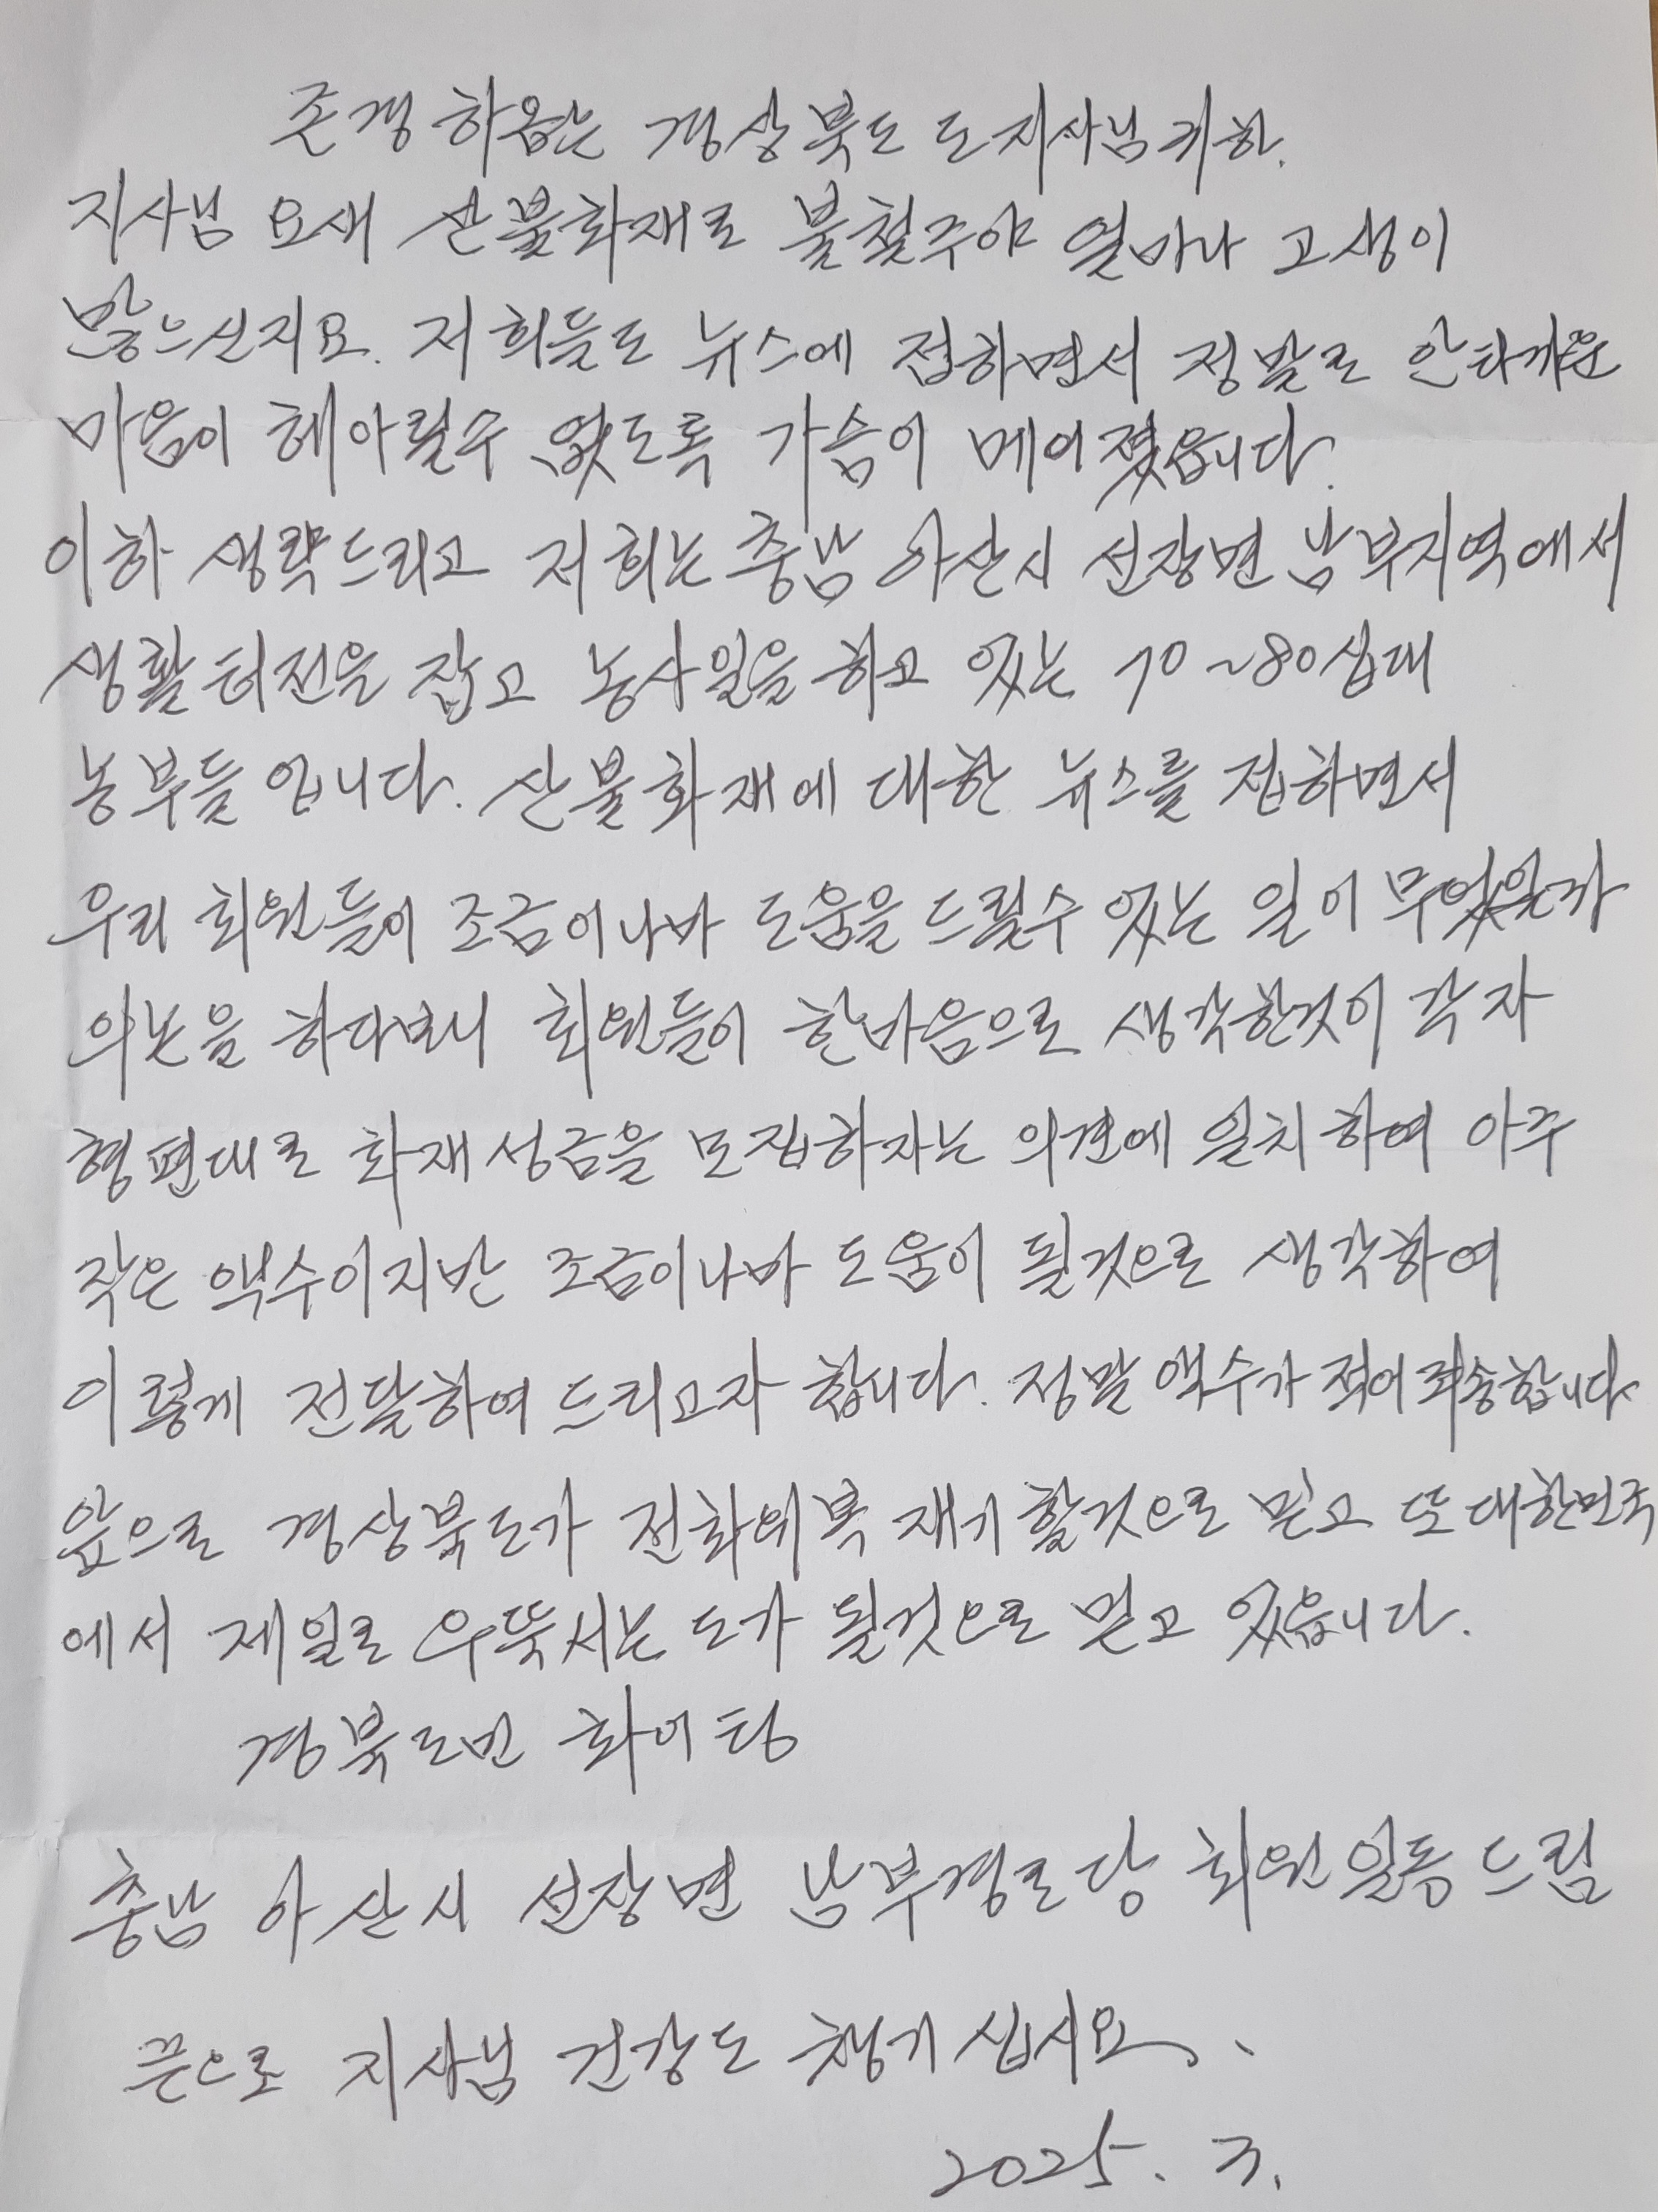 존경하옵는 경상북도 도지사님 귀하.
지사님 요새 산불화재로 불철주야 얼마나 고생이
많으신지요. 저희들도 뉴스에 접하면서 정말로 안타까운
마음이 헤아릴수 없도록 가슴이 메어졌읍니다.
이하 생략드리고 저희는 충남 아산시 선장면 남부지역에서
생활터전을 잡고 농사일을 하고 있는 70~80십대
농부들 입니다. 산불화재에 대한 뉴스를 접하면서
우리 회원들이 조금이나마 도움을 드릴수 있는 일이 무엇일가
의논을 하다보니 회원들이 한마음으로 생각한것이 각자
형편대로 화재성금을 모집하자는 의견에 일치하여 아주
작은 액수이지만 조금이나마 도움이 될것으로 생각하여
이렇게 전달하여 드리고자 합니다. 정말 액수가 적어 죄송합니다
앞으로 경상북도가 전화위복 재기할것으로 믿고 또 대한민국
에서 제일로 우뚝서는 도가 될것으로 믿고 있읍니다.
경북도민 화이팅
충남 아산시 선장면 남부경로당 회원일동 드림
끝으로 지사님 건강도 챙기십시요.
2025. 3.